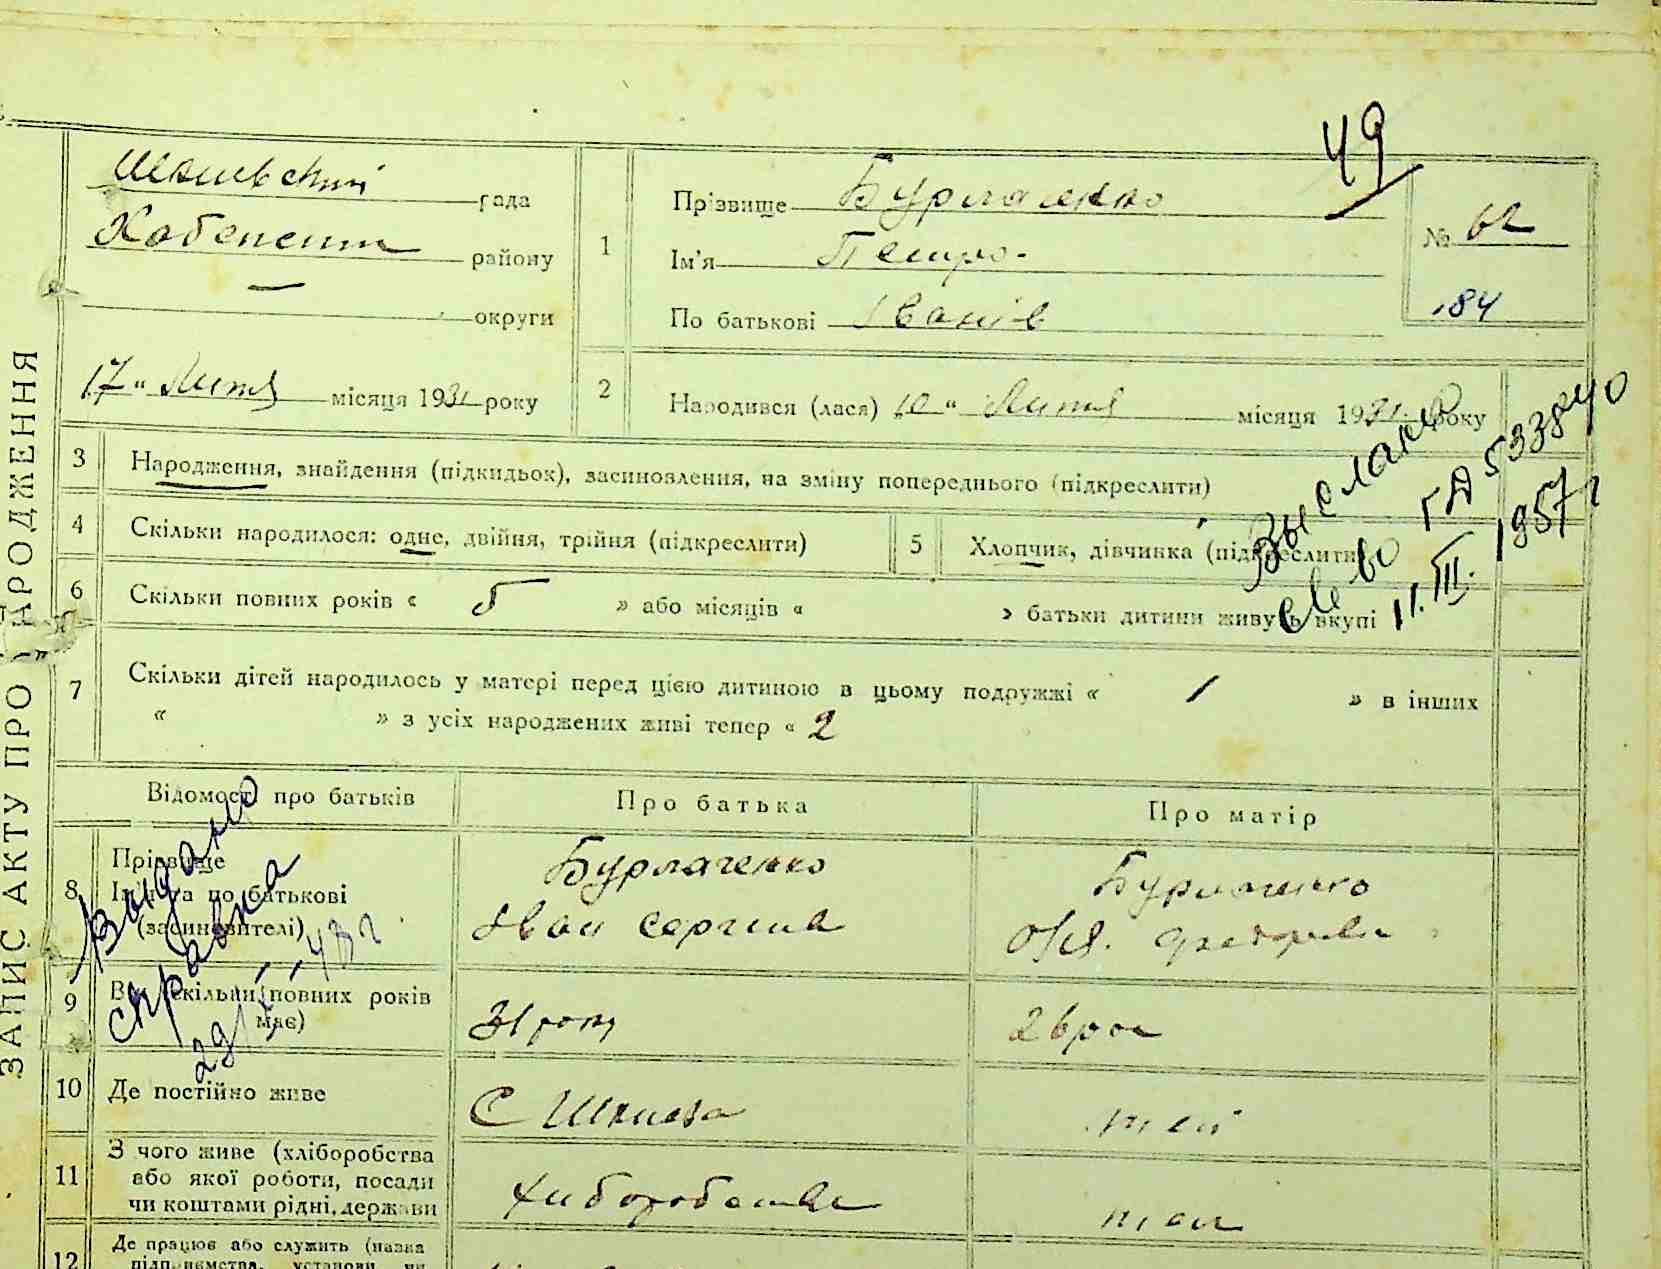 49
рада
району
округи
17 " Лютя місяця 1931 року
ЗАПИС АКТУ ПРО НАРОДЖЕННЯ
1
Прізвище Бурлаченко
Ім'я Петро.
По батькові Іванів
№ 62
184
2
Народився (лася) 10 " Лютя місяця 1931 року
3 Народження, знайдення (підкидьок), засиновлення, на зміну попереднього (підкреслити)
4 Скільки народилося: одне, двійня, трійня (підкреслити)
5 Хлопчик, дівчинка (підкреслити)
6 Скільки повних років « 5 » або місяців « » батьки дитини живуть вкупі
Выслано
св во ГА 533840
11. III. 1957 г
7 Скільки дітей народилось у матері перед цією дитиною в цьому подружжі « 1 » в інших
« » з усіх народжених живі тепер « 2
Відомості про батьків
Про батька
Про матір
8 Прізвище
Ім'я та по батькові
(засиновителі)
Бурлаченко
Іван
Бурлаченко
Видано
справка
9 Вік (скільки повних років
має)
31 рок
26 рок
10 Де постійно живе
С
11 З чого живе (хліборобства
або якої роботи, посади
чи коштами рідні, держави
12 Де працює або служить (назва
підприємства, установи чи